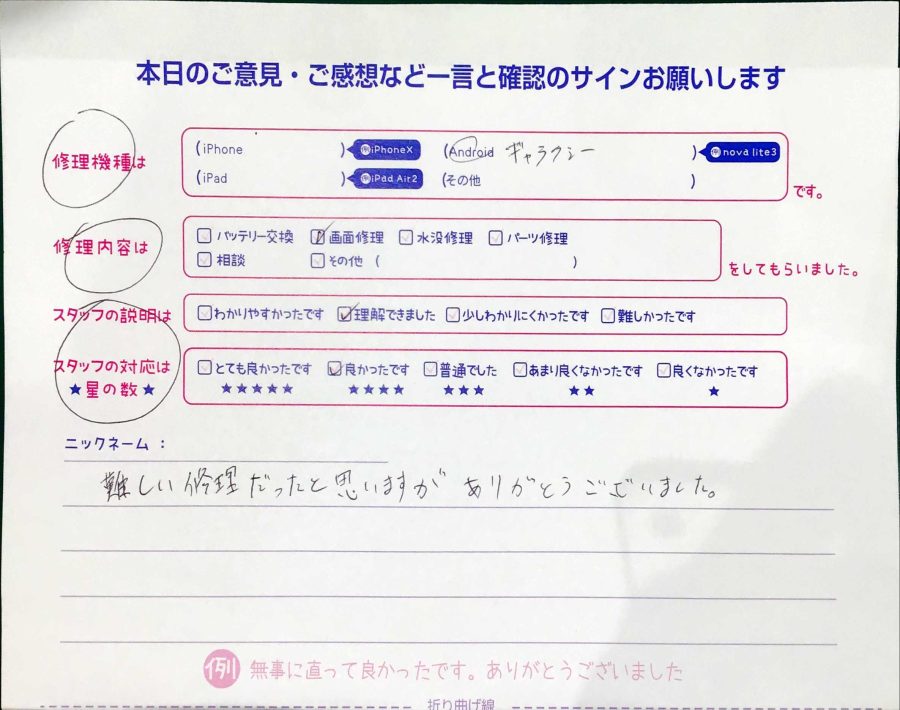 本日のご意見・ご感想など一言と確認のサインお願いします
修理機種は
(iPhone )例iPhoneX (Android ギャラクシー )例nova lite3
(iPad )例iPad Air2 (その他 )
です。
修理内容は
バッテリー交換 画面修理 水没修理 パーツ修理
相談 その他 ( )
をしてもらいました。
スタッフの説明は
わかりやすかったです 理解できました 少しわかりにくかったです 難しかったです
スタッフの対応は
★星の数★
とても良かったです 良かったです 普通でした あまり良くなかったです 良くなかったです
★★★★★ ★★★★ ★★★ ★★ ★
ニックネーム：
難しい修理だったと思いますが ありがとうございました。
例 無事に直って良かったです。ありがとうございました
折り曲げ線